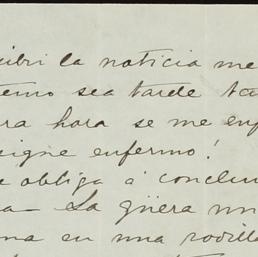 cibri la noticia me
temo sea tarde ta
ra hora se me en
signe enfermo!
e obliga á conclui
a— La güera un
na en una rodilla